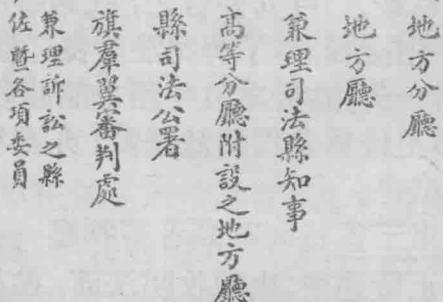 地方分廳
地方廳
兼理司法縣知事
高等分廳附設之地方廳
縣司法公署
旗羣翼審判處
兼理訴訟之縣
佐暨各項委員